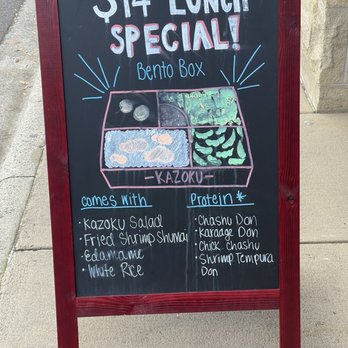 $14 LUNCH
SPECIAL!
Bento Box
-KAZOKU-
comes with
· Kazoku Salad
· Fried Shrimp Shumai
· Edamame
· White Rice
Protein *
· Chashu Don
· Karaage Don
· Chick chashu
· Shrimp Tempura
Don